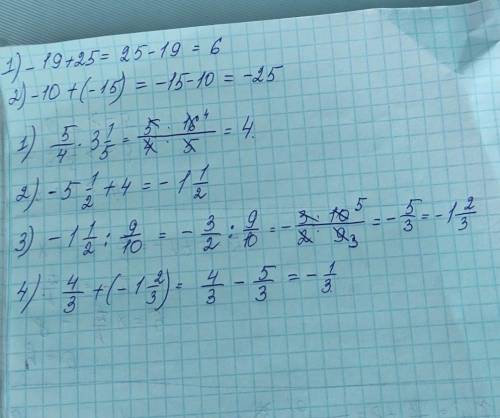 1) - 19 + 25 = 25 - 19 = 6
2) -10 + (-15) = -15 - 10 = -25
1) 5/4 · 3 1/5 = 5 · 16 4 / 4 · 5 = 4.
2) - 5 1/2 + 4 = - 1 1/2
3) - 1 1/2 : 9/10 = - 3/2 : 9/10 = - 3 · 10 5 / 2 · 9 3 = - 5/3 = -1 2/3
4) 4/3 + (- 1 2/3) = 4/3 - 5/3 = - 1/3